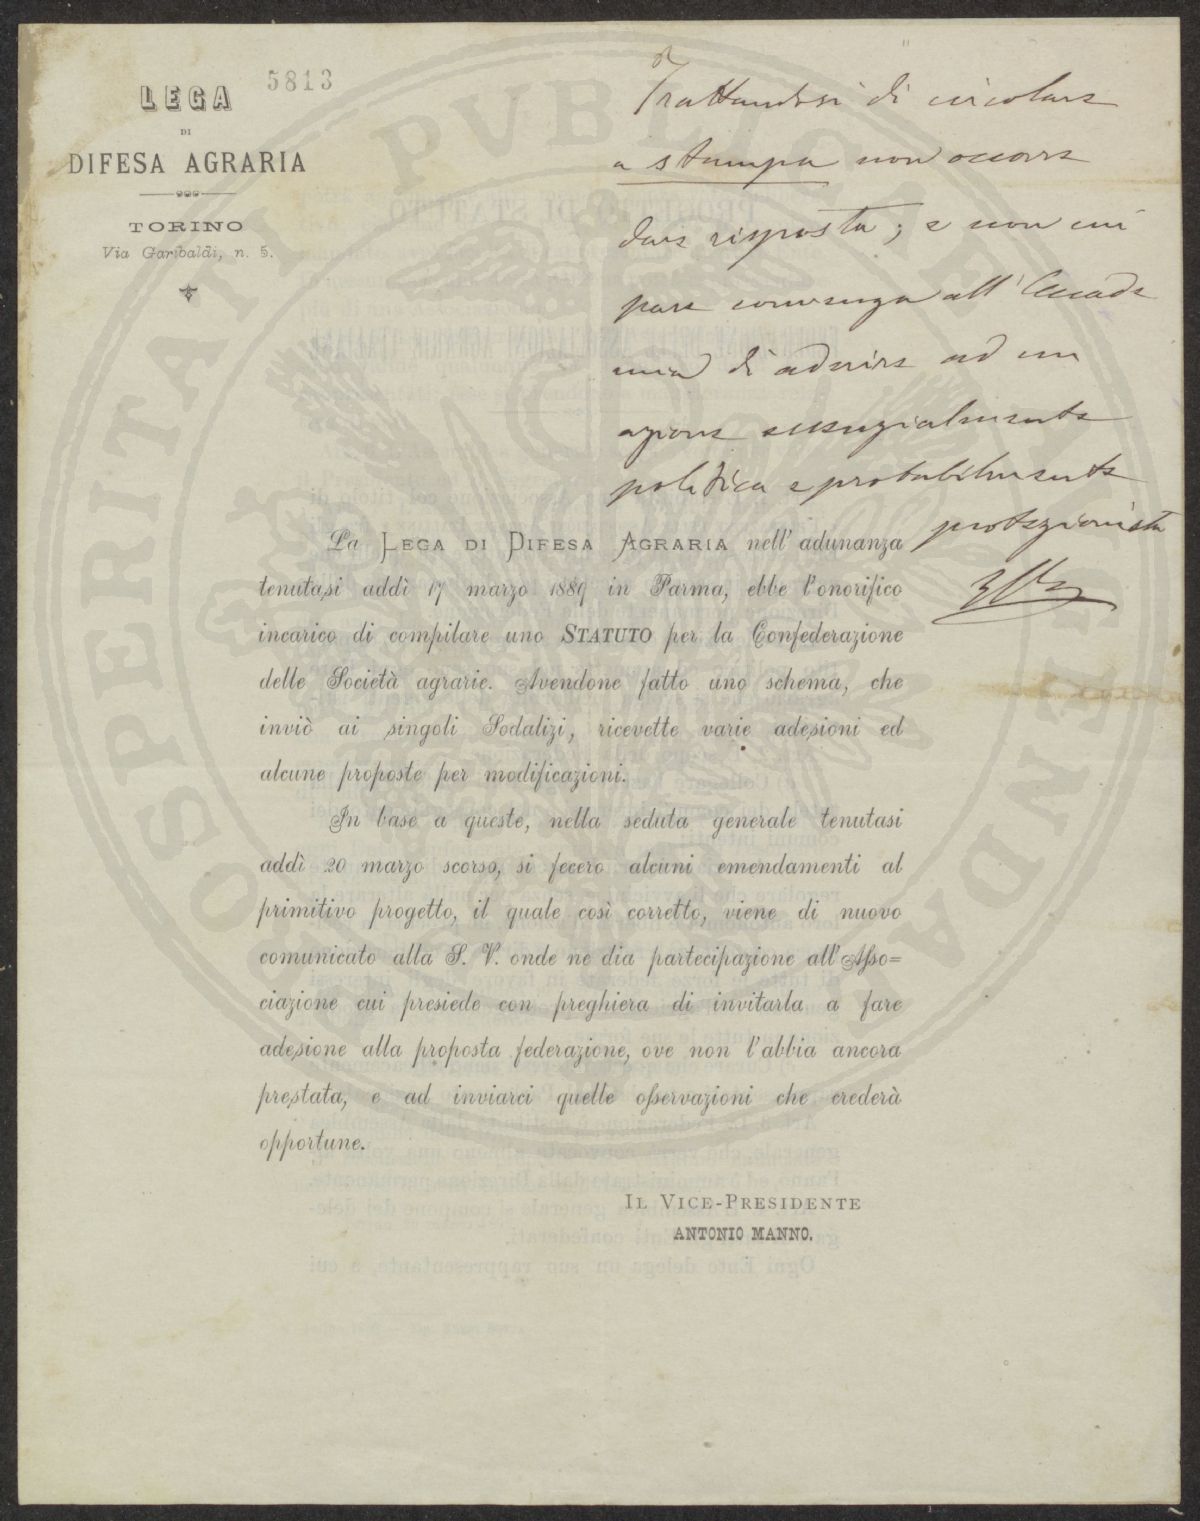 LEGA
5813
DI
DIFESA AGRARIA
TORINO
Via Garibaldi, n. 5.
Trattandosi di circolare
a stampa non occorre
dare risposta; e non mi
pare convenga all'Accade
mia di aderire ad un
azione essenzialmente
politica e probabilmente
protezionista
La LEGA DI DIFESA AGRARIA nell'adunanza
tenutasi addì 17 marzo 1889 in Parma, ebbe l'onorifico
incarico di compilare uno STATUTO per la Confederazione
delle Società agrarie. Avendone fatto uno schema, che
inviò ai singoli Sodalizi, ricevette varie adesioni ed
alcune proposte per modificazioni.
In base a queste, nella seduta generale tenutasi
addì 20 marzo scorso, si fecero alcuni emendamenti al
primitivo progetto, il quale così corretto, viene di nuovo
comunicato alla S. V. onde ne dia partecipazione all'Asso=
ciazione cui presiede con preghiera di invitarla a fare
adesione alla proposta federazione, ove non l'abbia ancora
prestata, e ad inviarci quelle osservazioni che crederà
opportune.
IL VICE-PRESIDENTE
ANTONIO MANNO.
PROSPERITATI PVBLICAE AVGENDAE